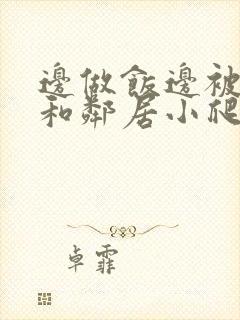 邊做飯邊被
和鄰居小爬
卓霏